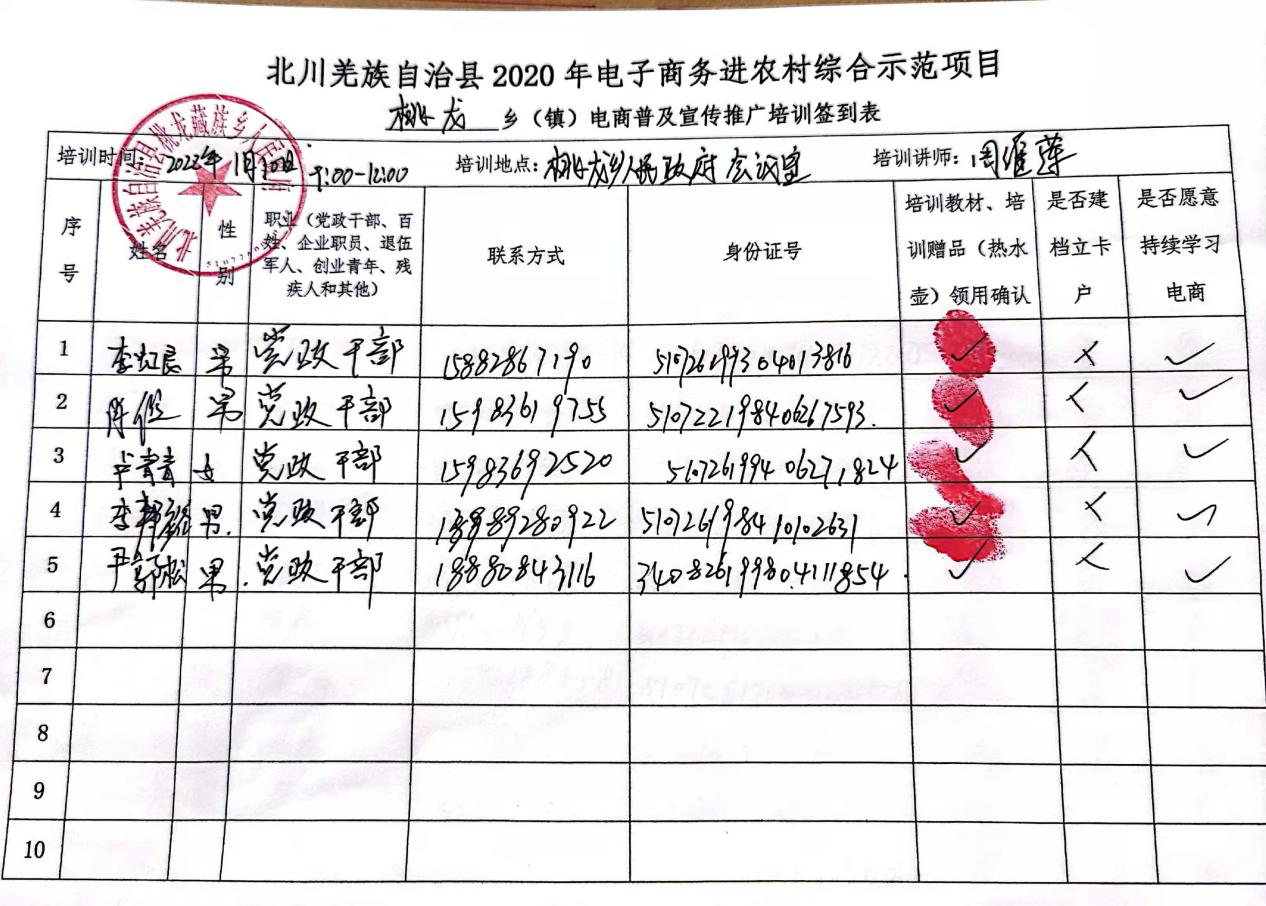 北川羌族自治县 2020 年电子商务进农村综合示范项目
桃龙 乡（镇）电商普及宣传推广培训签到表
培训时间： 2022年1月10日 9:00-12:00 培训地点：桃龙乡人民政府会议室 培训讲师：周维萍
北川羌族自治县桃龙藏族乡人民政府
序号 姓名 性别 职业（党政干部、百姓、企业职员、退伍军人、创业青年、残疾人和其他） 联系方式 身份证号 培训教材、培训赠品（热水壶）领用确认 是否建档立卡户 是否愿意持续学习电商
1 男 党政干部 15882867190 510726199304013816 ✓ × ✓
2 陈俊 男 党政干部 15983619755 510722198406267593. ✓ × ✓
3 女 党政干部 15983692520 510726199406271824 ✓ × ✓
4 男. 党政干部 510726198410102631 ✓ × ✓
5 男. 党政干部 18880843116 340826199804111854. ✓ × ✓
6
7
8
9
10